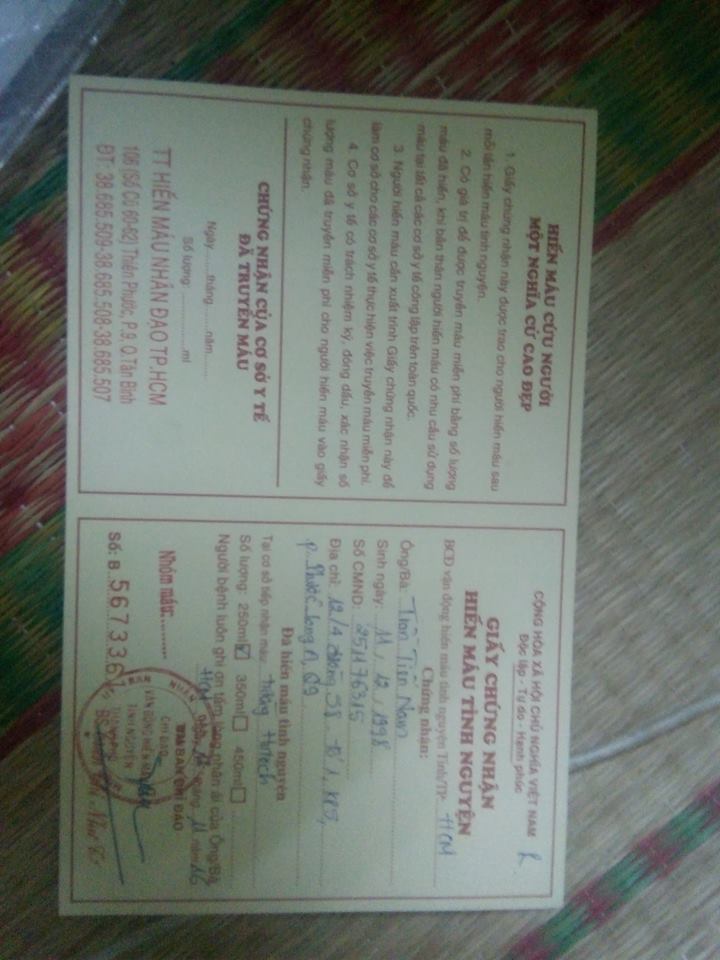 HIẾN MÁU CỨU NGƯỜI
MỘT NGHĨA CỬ CAO ĐẸP
1. Giấy chứng nhận này được trao cho người hiến máu sau
mỗi lần hiến máu tình nguyện.
2. Có giá trị để được truyền máu miễn phí bằng số lượng
máu đã hiến, khi bản thân người hiến máu có nhu cầu sử dụng
máu tại tất cả các cơ sở y tế công lập trên toàn quốc.
3. Người hiến máu cần xuất trình Giấy chứng nhận này để
làm cơ sở cho các cơ sở y tế thực hiện việc truyền máu miễn phí.
4. Cơ sở y tế có trách nhiệm ký, đóng dấu, xác nhận số
lượng máu đã truyền miễn phí cho người hiến máu vào giấy
chứng nhận.
CHỨNG NHẬN CỦA CƠ SỞ Y TẾ
ĐÃ TRUYỀN MÁU
Ngày.......tháng.......năm.......
Số lượng:................ml
TT HIẾN MÁU NHÂN ĐẠO TP.HCM
106 (Số Cũ 60-62) Thiên Phước, P.9, Q.Tân Bình
ĐT: 38.685.509-38.685.508-38.685.507
CỘNG HÒA XÃ HỘI CHỦ NGHĨA VIỆT NAM
Độc lập - Tự do - Hạnh phúc
R
GIẤY CHỨNG NHẬN
HIẾN MÁU TÌNH NGUYỆN
BCĐ vận động hiến máu tình nguyện Tỉnh/TP: HCM
Chứng nhận:
Ông/Bà: Tiến Nam
Sinh ngày: 11 / 12 / 1998
Số CMND: 251176315
Địa chỉ: 12/4 đường 38, tổ 1, KP5,
P. Phước Long A, Q9
Đã hiến máu tình nguyện
Tại cơ sở tiếp nhận máu: trường Hutech
Số lượng: 250ml ☑ 350ml ☐ 450ml ☐
Người bệnh luôn ghi ơn tấm lòng nhân ái của Ông/Bà
HCM, ngày tháng 11 năm 16
TM BAN CHỈ ĐẠO
Nhóm máu:...........
Số: B 567336
BAN NHÂN
CHỈ ĐẠO
VẬN ĐỘNG HIẾN MÁU
TÌNH NGUYỆN